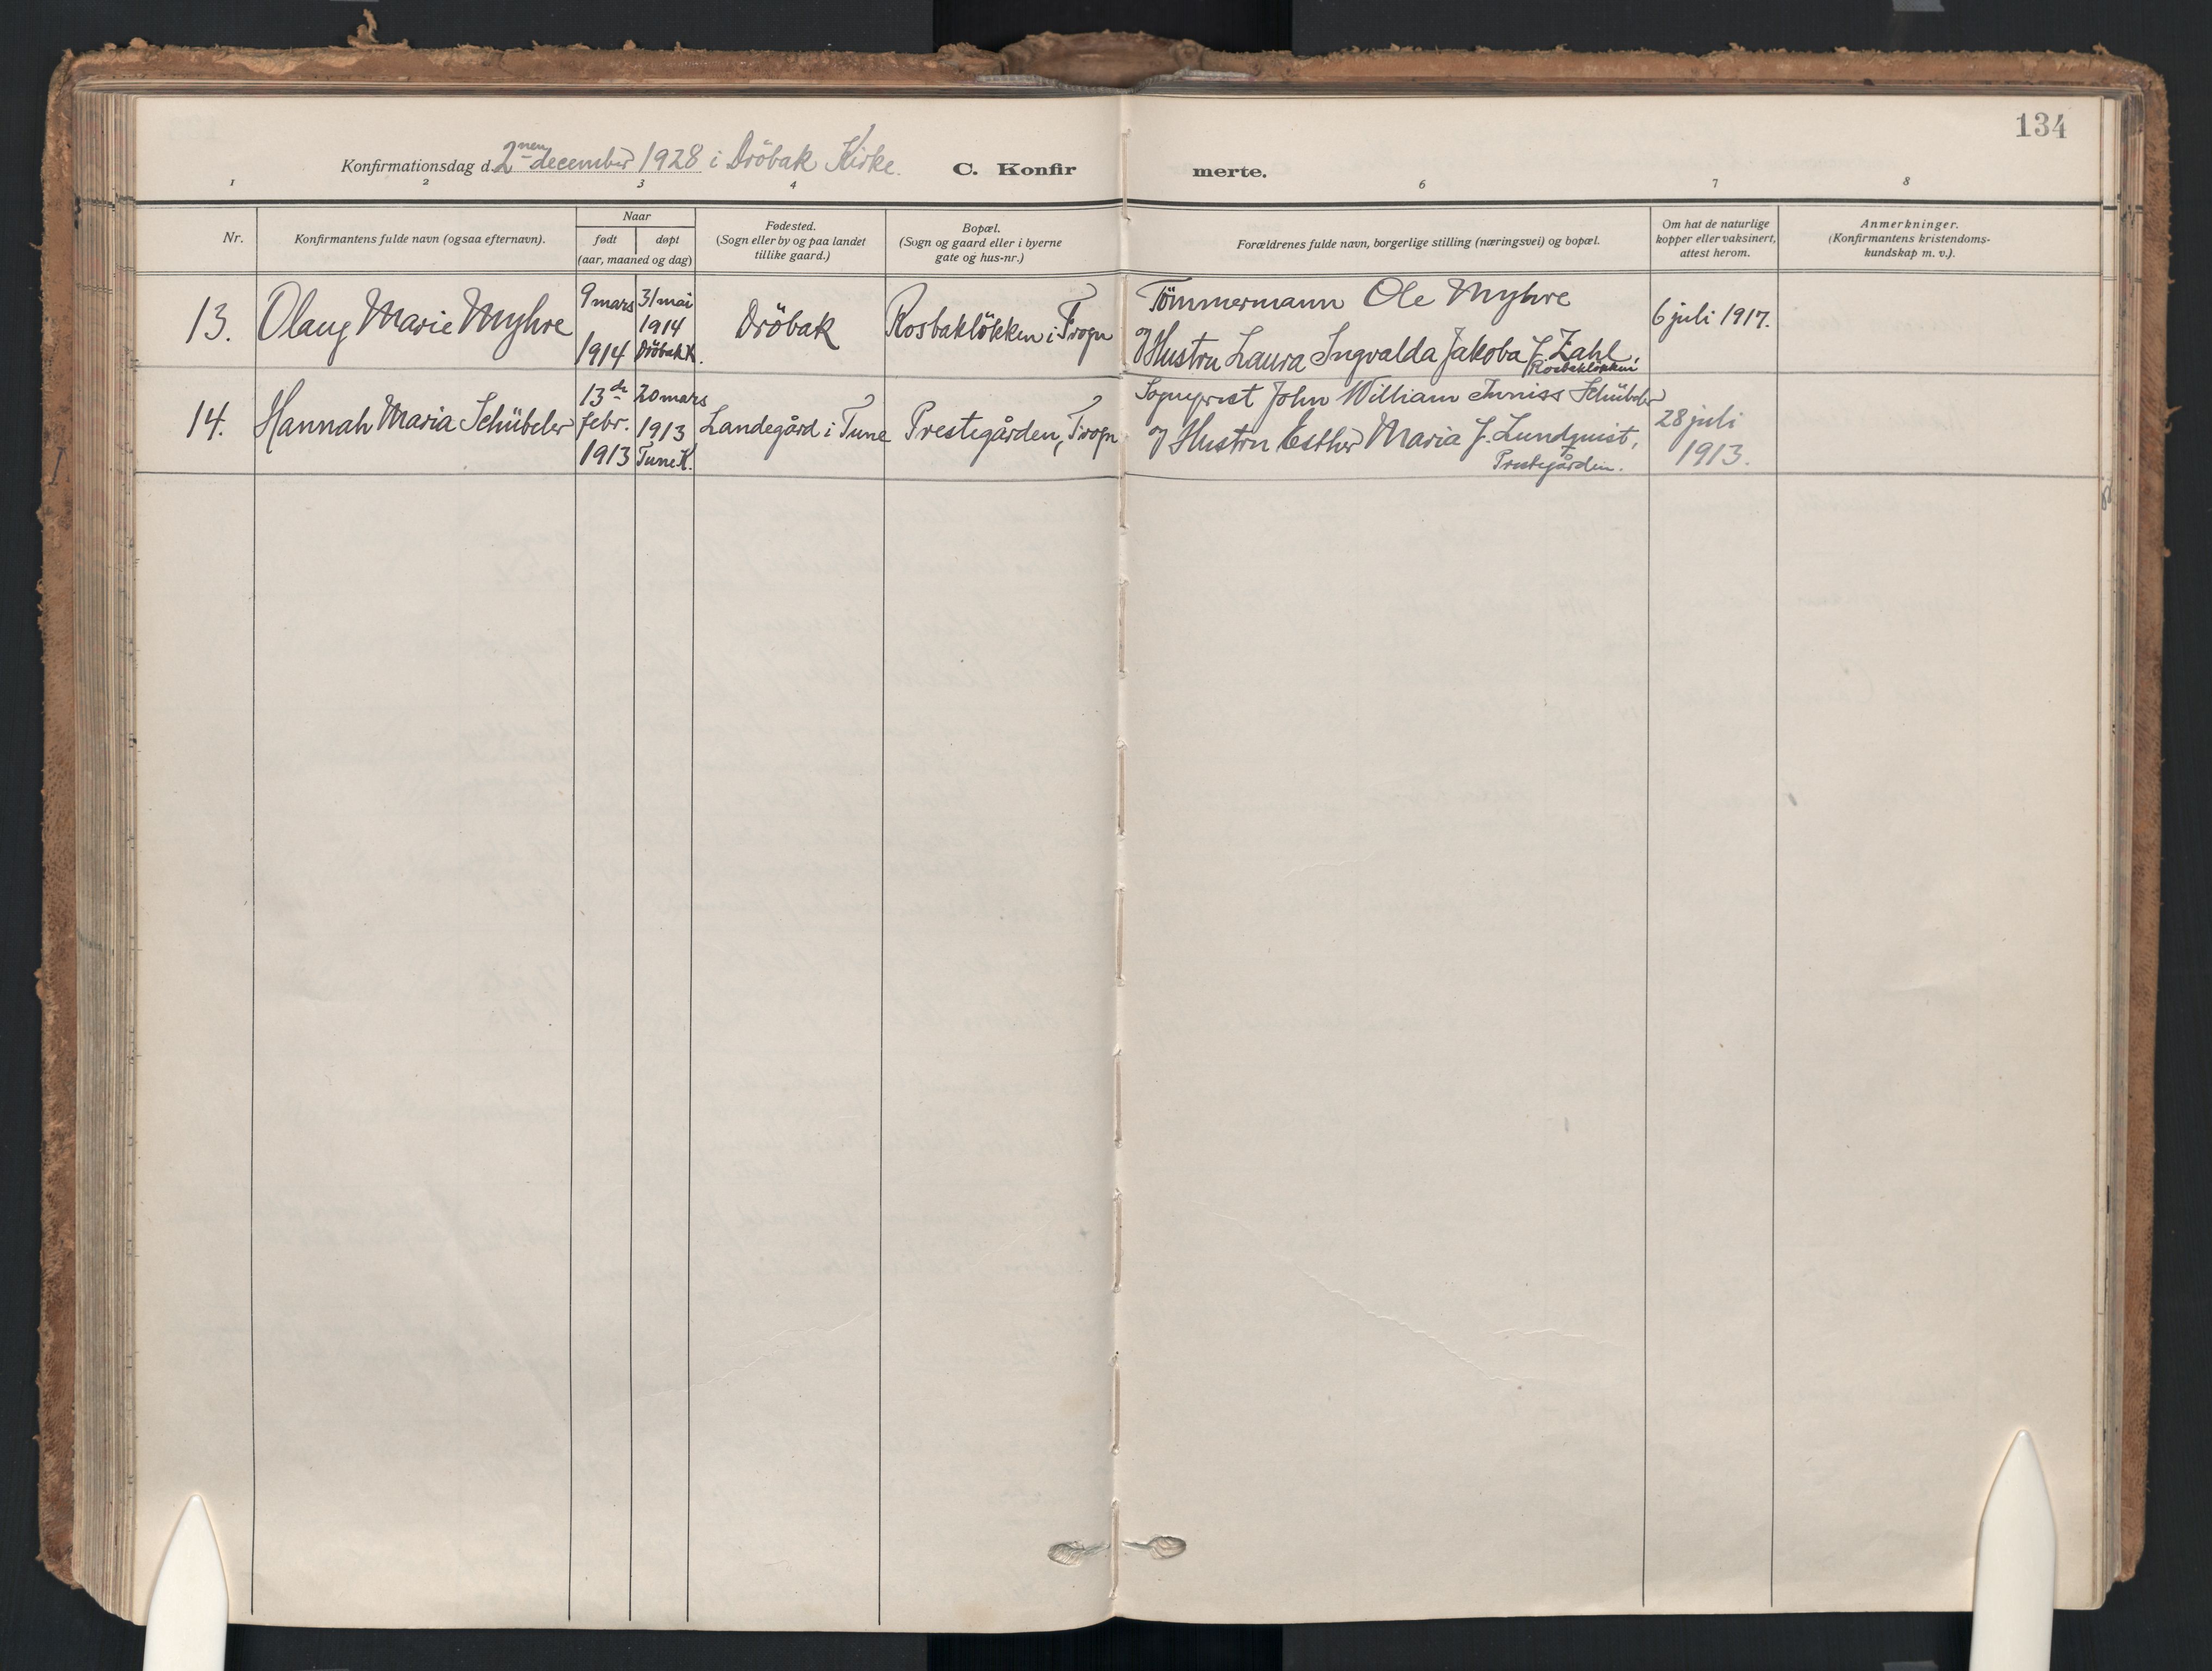 134
Konfirmationsdag d. 2nen december 1928 i Dröbak Kirke.
C. Konfirmerte.
1 2 3 4 6 7 8
Nr.
Konfirmantens fulde navn (ogsaa efternavn).
Naar
født
døpt
(aar, maaned og dag)
Fødested.
(Sogn eller by og paa landet
tillike gaard.)
Bopæl.
(Sogn og gaard eller i byerne
gate og hus-nr.)
Forældrenes fulde navn, borgerlige stilling (næringsvei) og bopæl.
Om hat de naturlige
kopper eller vaksinert,
attest herom.
Anmerkninger.
(Konfirmantens kristendoms-
kundskap m. v.).
13.
Olaug Marie Myhre
9 mars
1914
31 mai
1914
Dröbak K.
Dröbak
Rosbakløkken i Frogn
Tömmermann Ole Myhre
og Hustru Laura Ingvalda Jakoba f. Zahl,
Rosbakløkken
6 juli 1917.
14.
Hannah Maria Schübeler
13de
febr.
1913
20 mars
1913
Tune K.
Landegård i Tune
Prestegården, Frogn
Sogneprest John William Inniss Schübeler
og Hustru Esther Maria f. Lundquist,
Prestegården.
28 juli
1913.